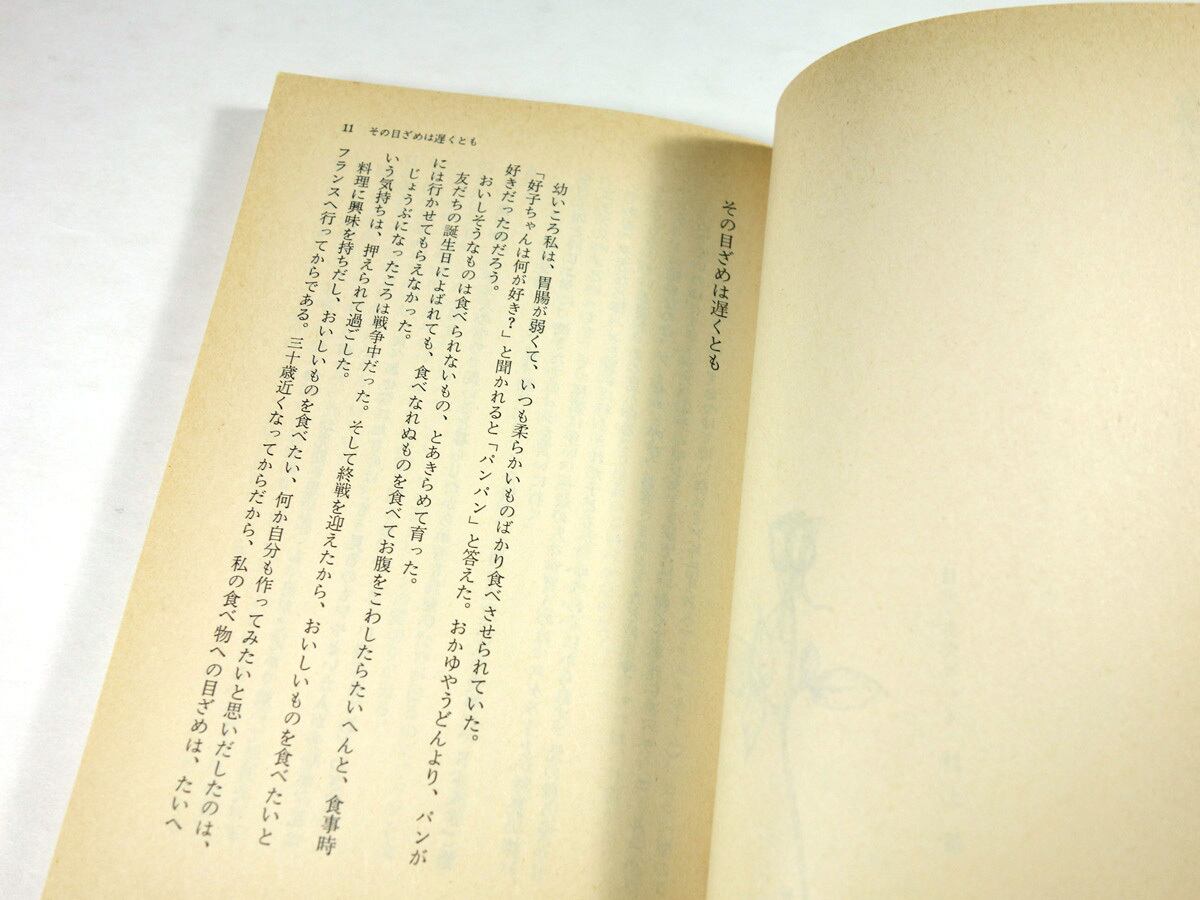 11 その目ざめは遅くとも
その目ざめは遅くとも
幼いころ私は、胃腸が弱くて、いつも柔らかいものばかり食べさせられていた。
「好子ちゃんは何が好き?」と聞かれると「パンパン」と答えた。おかゆやうどんより、パンが
好きだったのだろう。
おいしそうなものは食べられないもの、とあきらめて育った。
友だちの誕生日によばれても、食べなれぬものを食べてお腹をこわしたらたいへんと、食事時
には行かせてもらえなかった。
じょうぶになったころは戦争中だった。そして終戦を迎えたから、おいしいものを食べたいと
いう気持ちは、押えられて過ごした。
料理に興味を持ちだし、おいしいものを食べたい、何か自分も作ってみたいと思いだしたのは、
フランスへ行ってからである。三十歳近くなってからだから、私の食べ物への目ざめは、たいへ